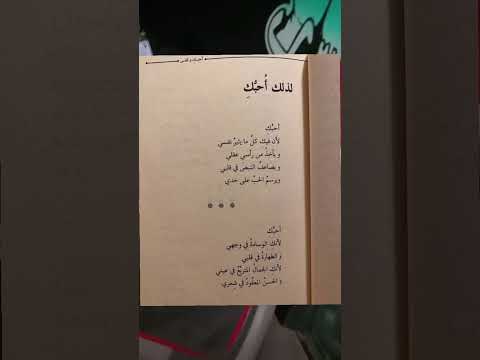 لذلك أُحبُّكِ
أحبُّك
لأن فيك كلَّ ما يثيرُ نفسي
و يأخذُ من رأسي عقلي
و يضاعفُ النبض في قلبي
ويرسمُ الحبَّ على خدي
أحبُّك
لأنك الوسامةُ في وجهي
و الطهارةُ في قلبي
لأنك الجمالُ المتربّعُ في عيني
و الحسنُ المعقودُ في شعري